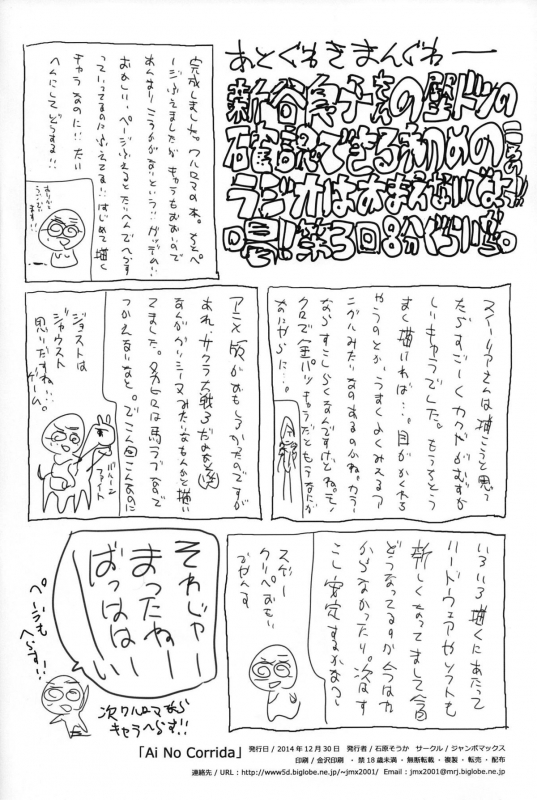 あとぐわきまんぐわー
新谷良子さんの壁ドンの
確認できる初めの
ラジオはおまえないでよ!!
喝!!第3回8分ぐらい。
完成しました。ワルロマの本。ちとペ
ージふえましたが キャラもおおいので
あんまりこうかがないという!! ガッデム!!
おかしい、ページふえるとたいへんでへらす
っていってるのにふえてる!! はじめて描く
キャラなのに!! たい
へんにしてどうする!!
スイーリアさんは描こうと思っ
たらすごーくカクドがむずか
しいキャラでした。もうちっとう
まく描ければ…。目がかくれる
やつのとか、うすくよくみえるア
ングルみたいなのあるのかね。カラー
ならすこしらくなんですけどね。モ
クロで金パツキャラだともうなにが
なにやらに…。
アニメ版がおもしろかったのですが
あれ、サクラ大戦3だよなあ
なんかパリシーヌみたいなもんかと描い
てました。タカヒロは馬ラブなので
つかえないなと。でこん回こんなのに
ジョストは
ジャウスト
思いだすね…
ゲーム。
バルーン
ファイト
いろいろ描くにあたって
ハードウェアやソフトも
新しくなってまして今回
どうなってるか今はわ
からなかったり。次はす
こし安定するかな〜
スゲー
クリペおもい
でやんす
それじゃー
まったねー
ばっはは〜い
ページも
へらす!!
次ワルロマあら
キャラへらす!!
「Ai No Corrida」 発行日 / 2014年12月30日 発行者 / 石原そうか サークル / ジャンボマックス
印刷 / 金沢印刷 ・禁18歳未満 ・無断転載 ・複製 ・転売 ・配布
連絡先 / URL : http://www5d.biglobe.ne.jp/~jmx2001/ Email : jmx2001@mrj.biglobe.ne.jp